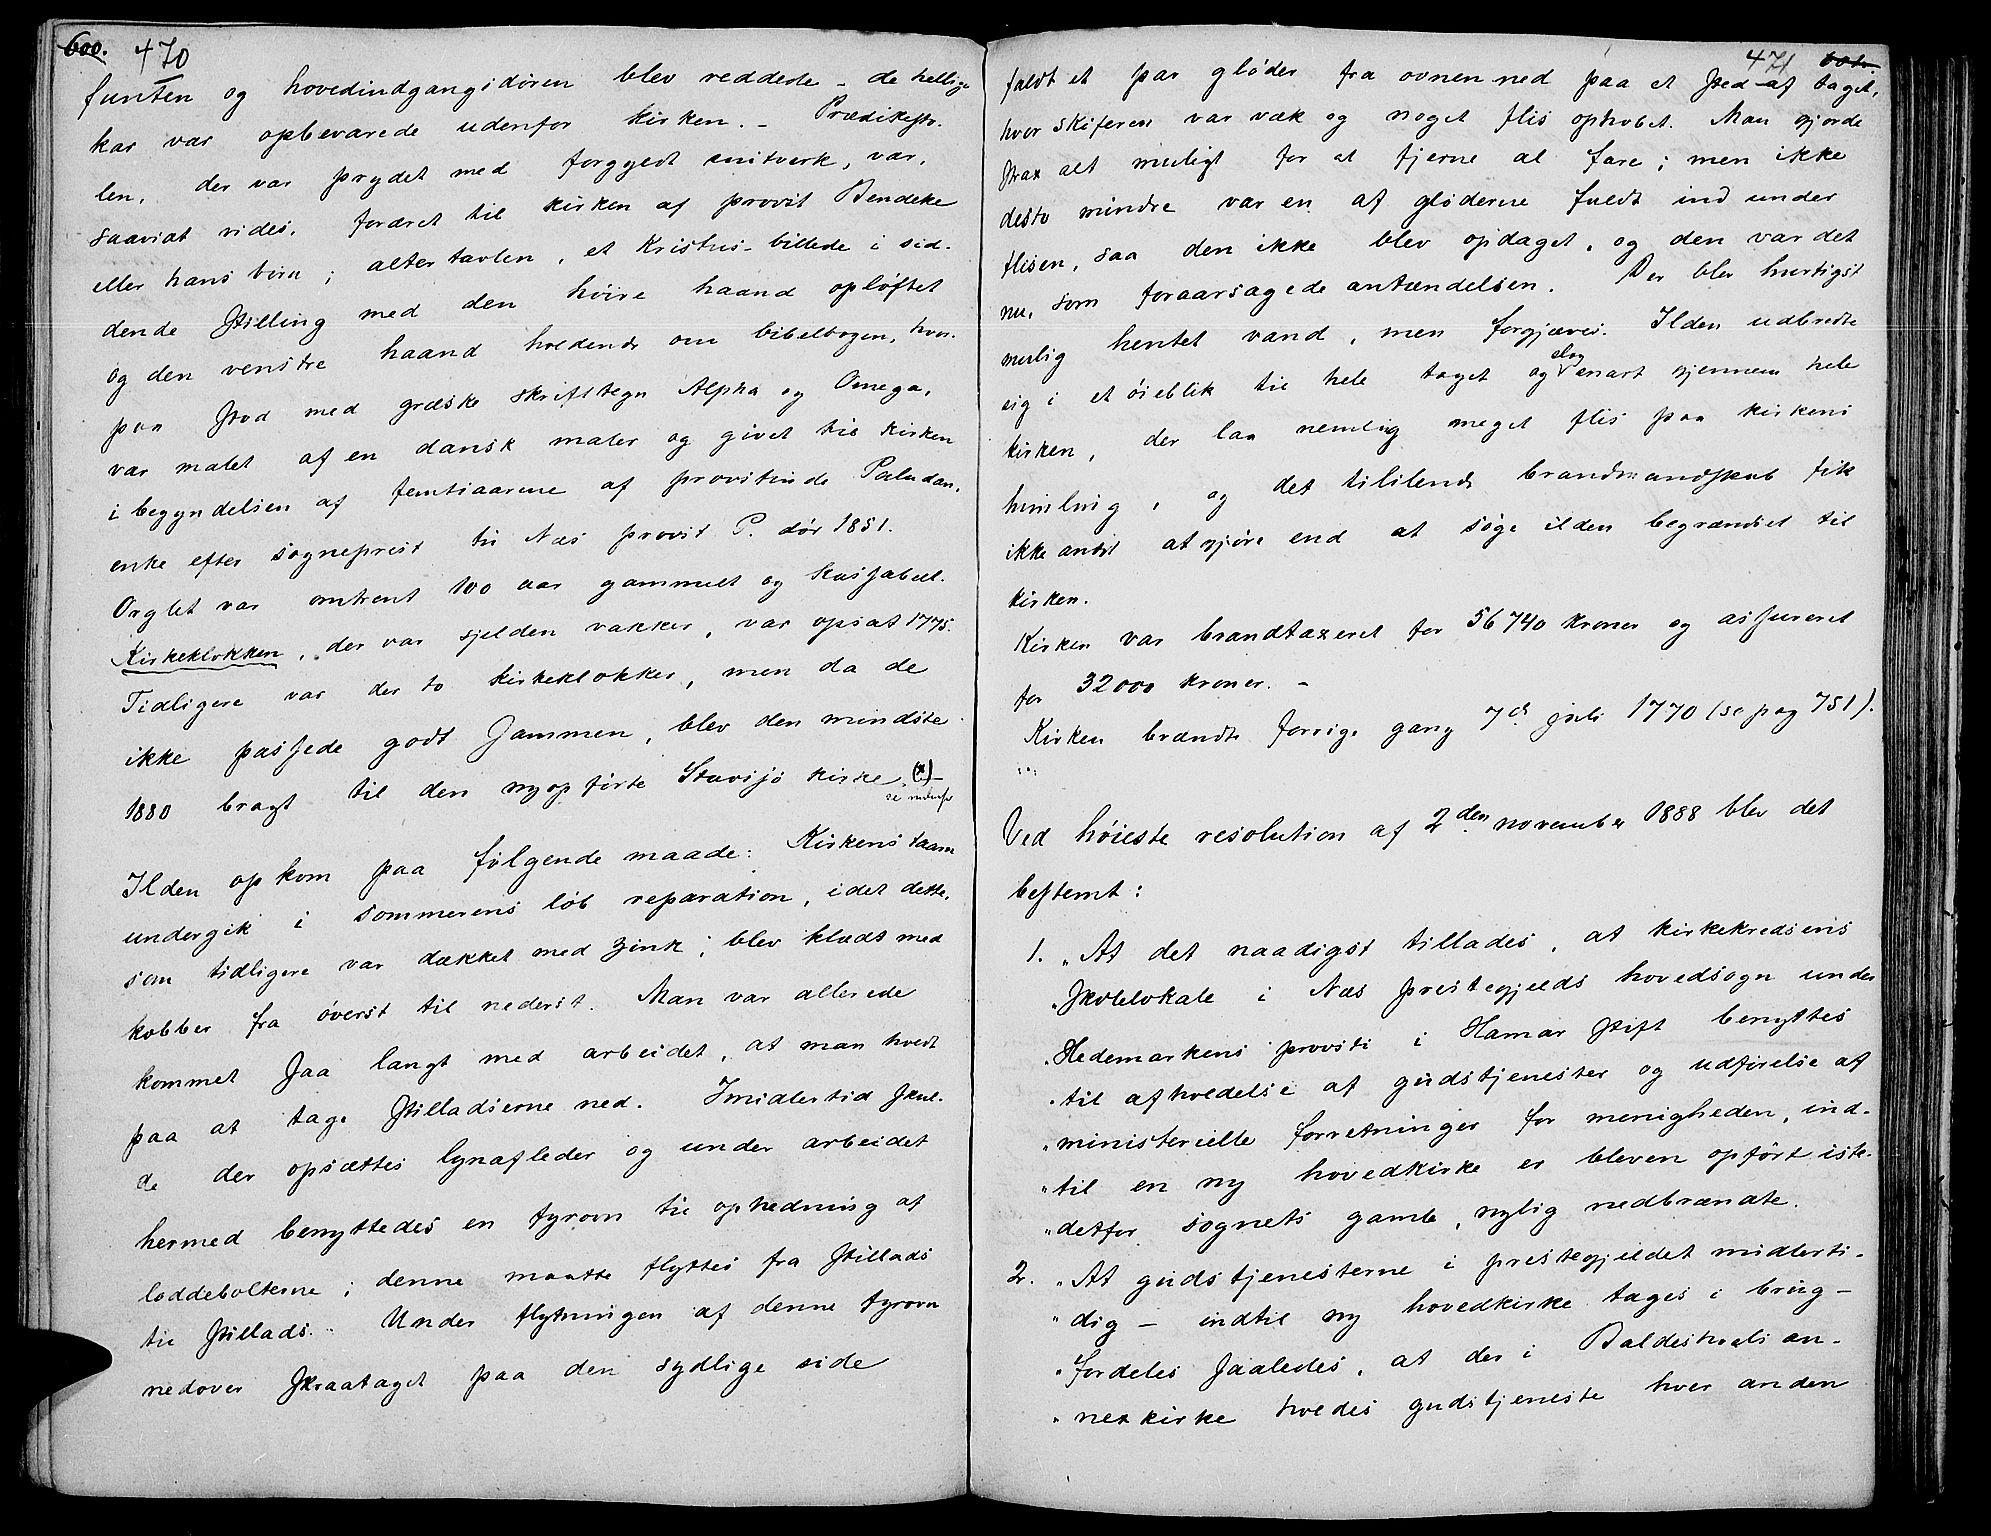 600. 470
funten og hovedindgangsdøren blev reddede – de hellige
kar var opbevarede udenfor kirken. – Prædikesto-
len, der var prydet med forgyldt snitverk, var,
saavidt vides, foræret til kirken af provst Bendeke
eller hans børn; altertavlen, et Kristus-billede i sid-
dende stilling med den høire haand opløftet
og den venstre haand holdende om bibelbogen, hvor-
paa stod med græske skrifttegn Alpha og Omega,
var malet af en dansk maler og givet til kirken
i begyndelsen af femtiaarene af provstinde Paludan,
enke efter sogneprest til Næs provst P. dør 1851.
Orglet var omtrent 100 aar gammelt og kassabelt.
Kirkeklokken, der var sjelden vakker, var opsat 1775.
Tidligere var der to kirkeklokker, men da de
ikke passede godt sammen, blev den mindste
1880 bragt til den nyopførte Stavsjø kirke. (x) –
se nedenfor
Ilden opkom paa følgende maade: Kirkens taarn
undergik i sommerens løb reparation, idet dette,
som tidligere var dækket med zink, blev klædt med
kobber fra øverst til nederst. Man var allerede
kommet saa langt med arbeidet, at man holdt
paa at tage stilladserne ned. Imidlertid skul-
de der opsættes lynafleder og under arbeidet
hermed benyttedes en fyrovn til ophedning af
loddeboltene; denne maatte flyttes fra stillads
til stillads. Under flytningen af denne fyrovn
nedover skraataget paa den sydlige side
471 601.
faldt et par gløder fra ovnen ned paa et sted af taget,
hvor skiferen var væk og noget flis ophobet. Man gjorde
strax alt muligt for at fjerne al fare; men ikke
desto mindre var en af gløderne faldt ind under
flisen, saa den ikke blev opdaget, og den var det
nu, som foraarsagede antændelsen. Der blev hurtigst
mulig hentet vand, men forgjæves. Ilden udbredte
sig i et øieblik til hele taget og slog snart gjennem hele
kirken, der laa nemlig meget flis paa kirkens
himling, og det tililende brandmandskab fik
ikke andet at gjøre end at søge ilden begrændset til
kirken.
Kirken var brandtaxeret for 56740 kroner og assureret
for 32000 kroner. –
Kirken brændte forrige gang 7de juli 1770 (se pag 751).
Ved høieste resolution af 2den november 1888 blev det
bestemt:
1. „At det naadigst tillades, at kirkekredsens
„skolelokale i Næs prestegjelds hovedsogn under
„Hedemarkens provsti i Hamar stift benyttes
„til afholdelse af gudstjenester og udførelse af
„ministerielle forretninger for menigheden, ind-
„til en ny hovedkirke er bleven opført iste-
„detfor sognets gamle, nylig nedbrændte.
2. „At gudstjenesterne i prestegjeldet midlerti-
„dig – indtil ny hovedkirke tages i brug –
„fordeles saaledes, at der i Baldishols an-
„nexkirke holdes gudstjeneste hver anden